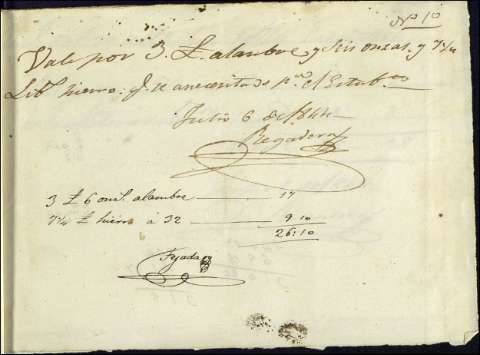 Nº 10
Vale por 3. £. alambre y seis onzas. y 7¼
Lib.s hierro: q. se a necesitado p.a el Estab.to
Julio 6 de 1844
Regadera
3 £ 6 ons. alambre 17
7¼ £ hierro á 32 9.10
26:10